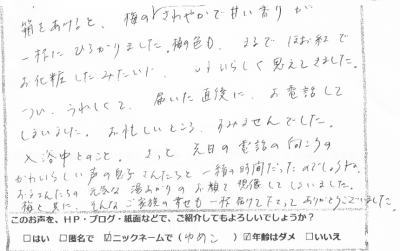 箱をあけると、梅のさわやかで甘い香りが
一杯にひろがりました。梅の色も、まるでほお紅で
お化粧したみたいに、いじらしく思えてきました。
つい、うれしくて、届いた直後に、お電話して
しまいました。お忙しいところ、すみませんでした。
入浴中とのこと。きっと 先日の電話の向こうの
かわいらしい声の息子さんたちと一緒の時間だったのでしょうね。
お子さんたちの元気な湯あがりのお顔を想像してしまいました。
梅と共に、そんなご家族の幸せも一杯届けて下さってありがとうございました。
このお声を、HP・ブログ・紙面などで、ご紹介してもよろしいでしょうか?
□はい □匿名で ☑ニックネームで(ゆめこ) ☑年齢はダメ □いいえ